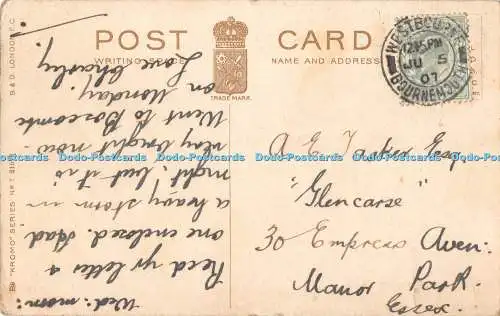 POST CARD
WRITING SPACE
NAME AND ADDRESS
TRADE MARK.
B & D. LONDON E.C.
"KROMO" SERIES
WESTBOURNE
12.15PM
JU 5
07
BOURNEMOUTH
A E Tasker Esq.
"Glencarse"
30 Empress Aven:
Manor Park.
Essex.
Wed: morn:
Recd yr letter &
one enclosed. Had
a heavy storm in
night; but it is
very bright now.
Went to Boscombe
on Monday
Love Charley.
Dodo-Postcards Dodo-Postcards Dodo-Postcards Dodo-Postcards Dodo-Postcards Dodo-Postcards